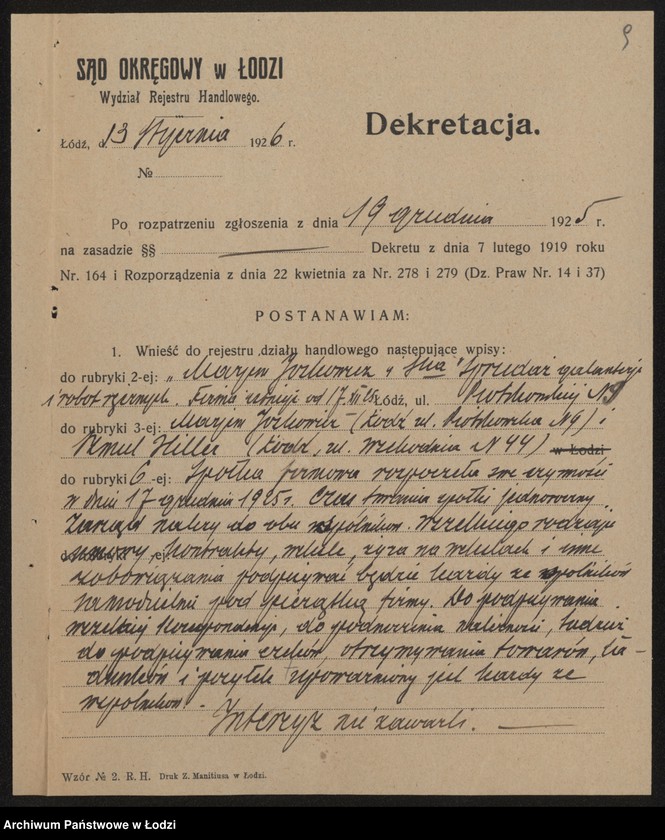 9
SĄD OKRĘGOWY w ŁODZI
Wydział Rejestru Handlowego.
Dekretacja.
Łódź, d. 13 Stycznia 1926 r.
№
Po rozpatrzeniu zgłoszenia z dnia 19 grudnia 1925 r.
na zasadzie §§ Dekretu z dnia 7 lutego 1919 roku
Nr. 164 i Rozporządzenia z dnia 22 kwietnia za Nr. 278 i 279 (Dz. Praw Nr. 14 i 37)
POSTANAWIAM:
1. Wnieść do rejestru działu handlowego następujące wpisy:
do rubryki 2-ej: „Marjem Joskowicz i S-ka" Sprzedaż galanterji
i robót ręcznych. Firma istnieje od 17.XII.25 Łódź, ul. Piotrkowskiej N 9
do rubryki 3-ej: Marjem Joskowicz (Łódź ul. Piotrkowska N 9) i
Hiller (Łódź, ul. Wschodnia N 44) w Łodzi
do rubryki 6-ej: Spółka firmowa rozpoczęła swe czynności
w dniu 17 grudnia 1925 r. Czas trwania spółki jednoroczny.
Zarząd należy do obu wspólników. Wszelkiego rodzaju
do rubryki -ej: umowy, kontrakty, weksle, żyra na wekslach i inne
zobowiązania podpisywać będzie każdy ze wspólników
samodzielnie pod pieczątką firmy. Do podpisywania
wszelkiej korespondencji, do podnoszenia należności, tudzież
do podpisywania czeków, otrzymywania towarów, ła-
dunków i przesyłek upoważniony jest każdy ze
wspólników.
Intercyz nie zawarli.
Wzór № 2. R. H. Druk Z. Manitiusa w Łodzi.
Archiwum Państwowe w Łodzi